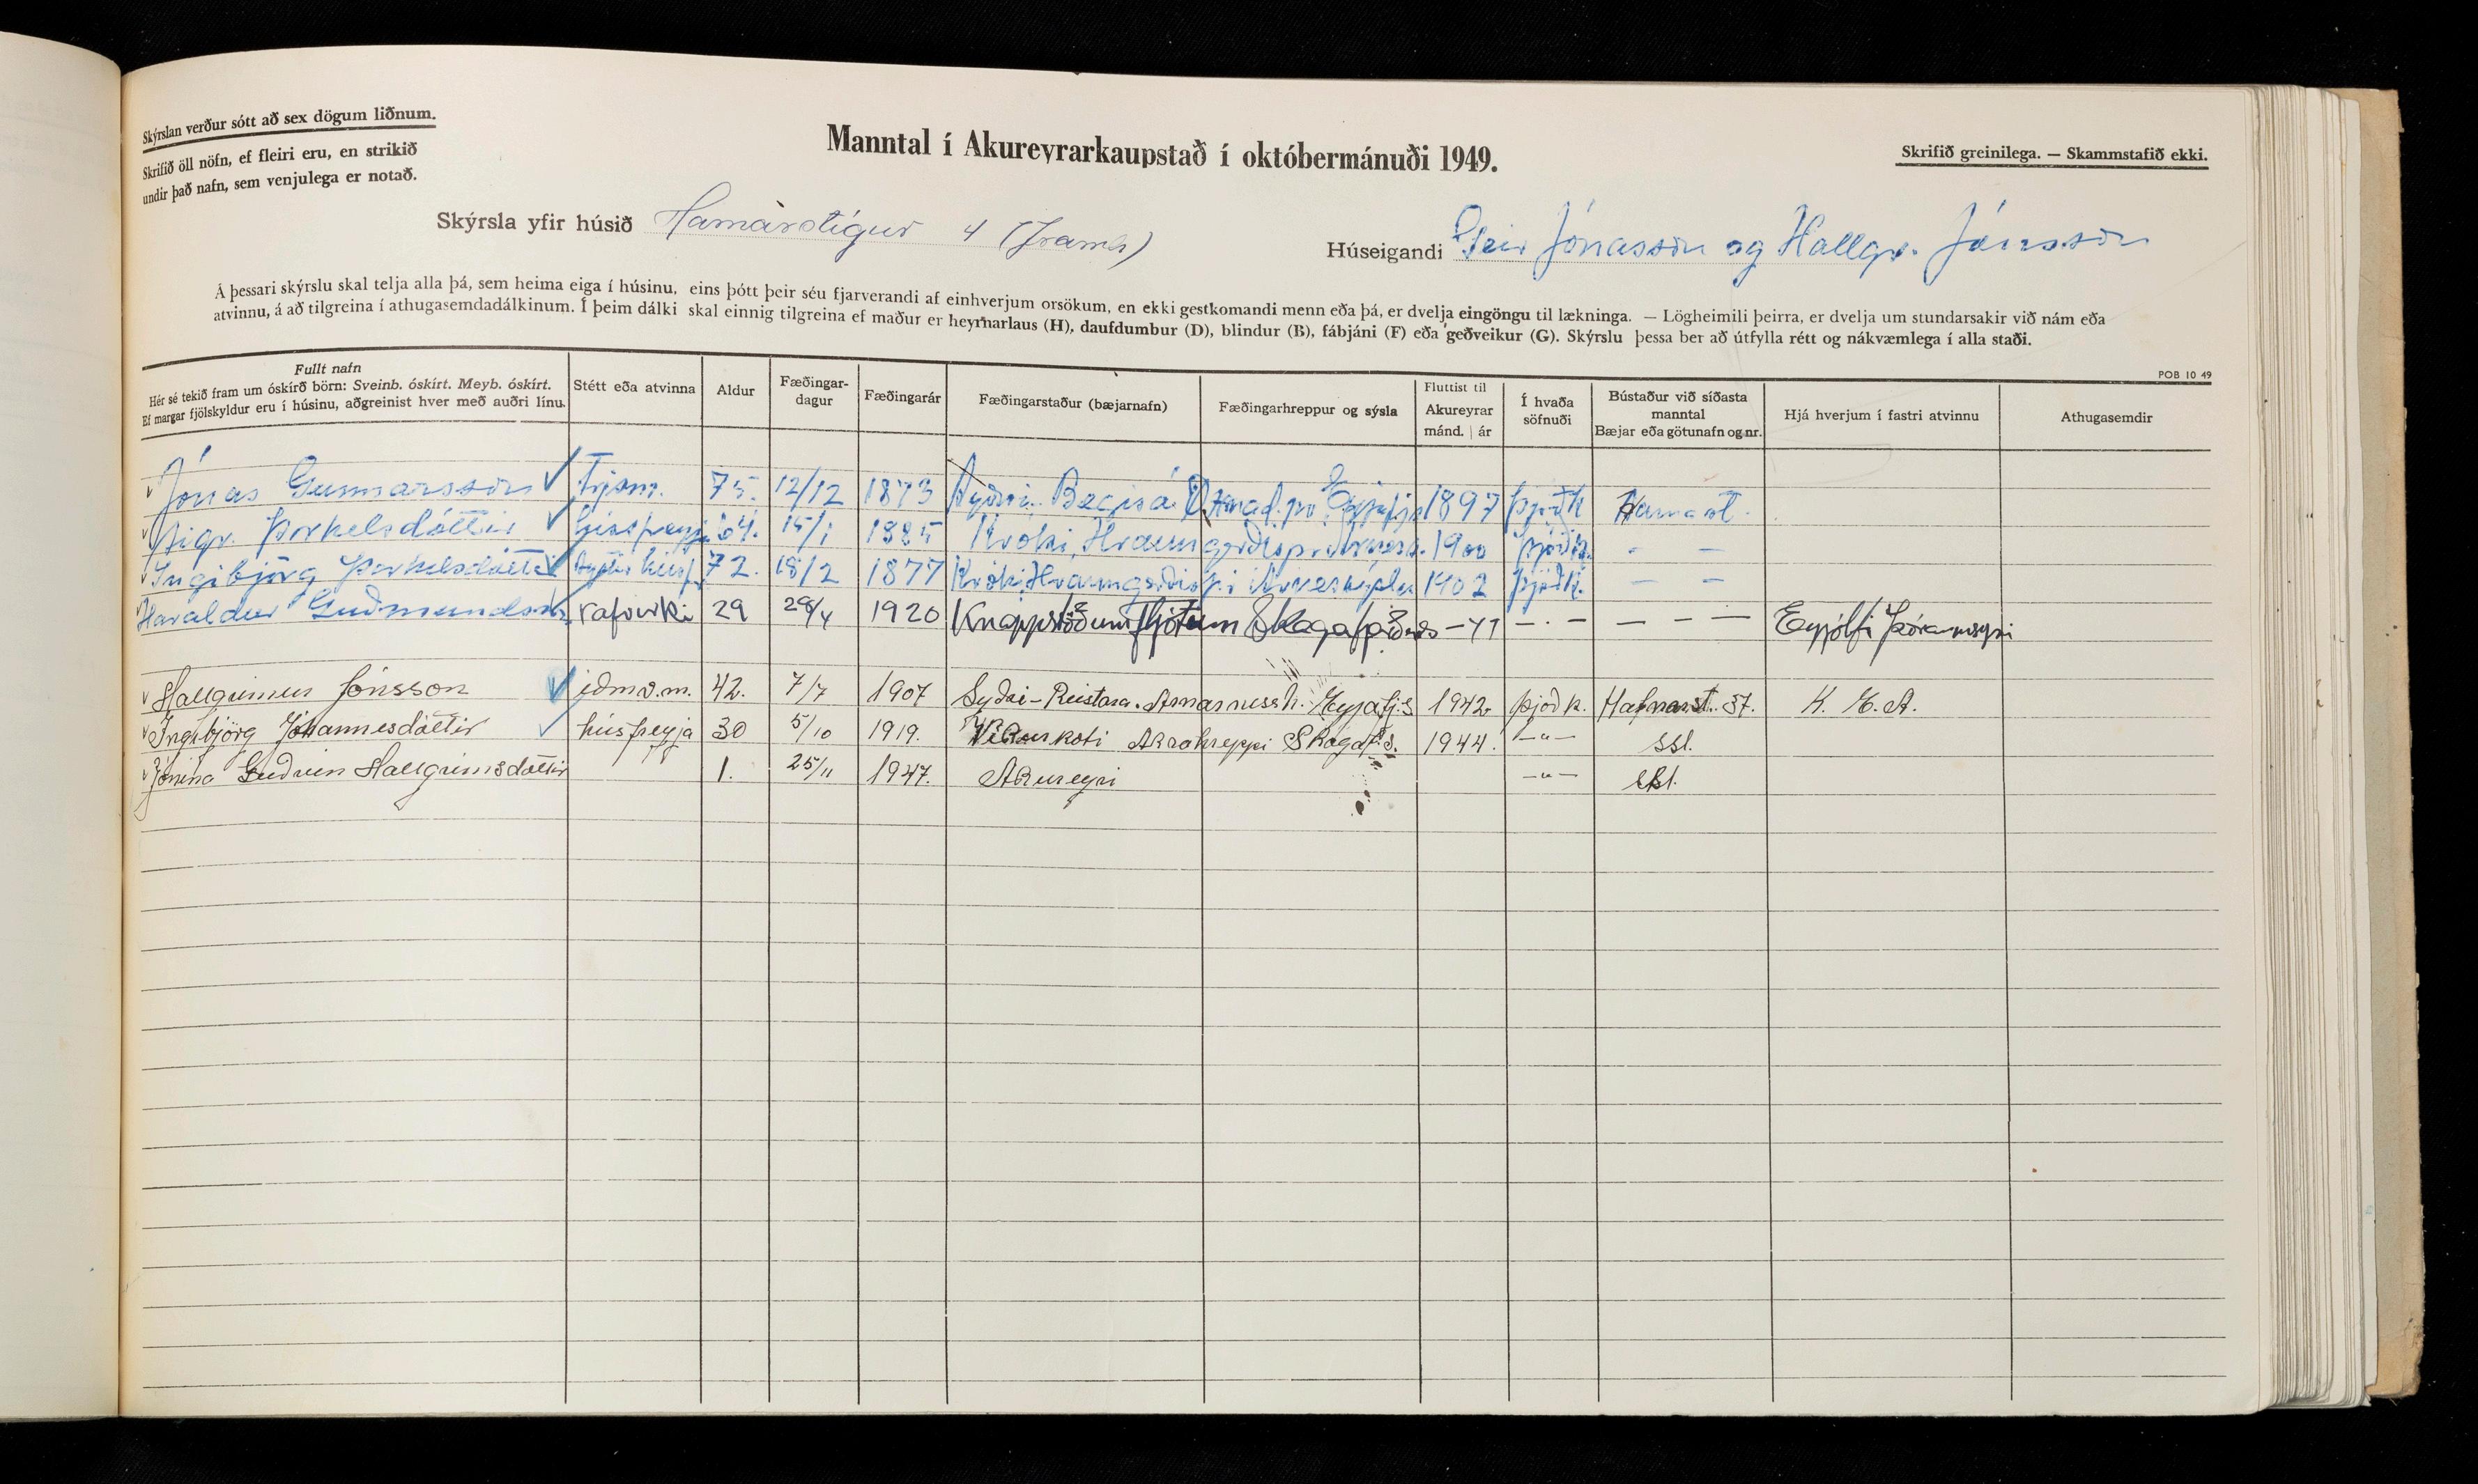 Skýrslan verður sótt að sex dögum liðnum.
Skrifið öll nöfn, ef fleiri eru, en strikið
undir það nafn, sem venjulega er notað.
Manntal í Akureyrarkaupstað í októbermánuði 1949.
Skrifið greinilega. — Skammstafið ekki.
Skýrsla yfir húsið Hamarstígur 4
Húseigandi Geir Jónasson og Hallgr. Jónsson
Á þessari skýrslu skal telja alla þá, sem heima eiga í húsinu, eins þótt þeir séu fjarverandi af einhverjum orsökum, en ekki gestkomandi menn eða þá, er dvelja eingöngu til lækninga. — Lögheimili þeirra, er dvelja um stundarsakir við nám eða
atvinnu, á að tilgreina í athugasemdadálkinum. Í þeim dálki skal einnig tilgreina ef maður er heyrnarlaus (H), daufdumbur (D), blindur (B), fábjáni (F) eða geðveikur (G). Skýrslu þessa ber að útfylla rétt og nákvæmlega í alla staði.
POB 10 49
Fullt nafn
Hér sé tekið fram um óskírð börn: Sveinb. óskírt. Meyb. óskírt.
Ef margar fjölskyldur eru í húsinu, aðgreinist hver með auðri línu.
Stétt eða atvinna
Aldur
Fæðingar-
dagur
Fæðingarár
Fæðingarstaður (bæjarnafn)
Fæðingarhreppur og sýsla
Fluttist til
Akureyrar
mánd. | ár
Í hvaða
söfnuði
Bústaður við síðasta
manntal
Bæjar eða götunafn og nr.
Hjá hverjum í fastri atvinnu
Athugasemdir
Jónas Gunnarsson Trjsm. 75. 12/12 1873 Bægisá 1897 þjóðk Hamast.
Sigr. Þorkelsdóttir húsfreyja 64. 15/1 1885 Króki, Hraungerðishr. 1900 þjóðk. - -
Ingibjörg Þorkelsdóttir 72. 18/2 1877 Króki, Hraungerðishr. Árnessýslu 1902 þjóðk. - -
Haraldur Guðmundsson rafvirki 29 1920 Knappstöðum Fljótum Skagafjarðars -41 - · - - - - Eyjólfi Þórarinssyni
Hallgrímur Jónsson iðnv.m. 42. 7/7 1907 Syðri-Reistará. Arnarnesh. Eyjafj.s 1942 þjóðk. Hafnarst. 37. K. E. A.
Ingibjörg Jóhannesdóttir húsfreyja 30 5/10 1919. Víkurkoti Akrahreppi Skagaf.s. 1944. -"- ssl.
Jónína Guðrún Hallgrímsdóttir 1. 25/11 1947. Akureyri -"- ssl.